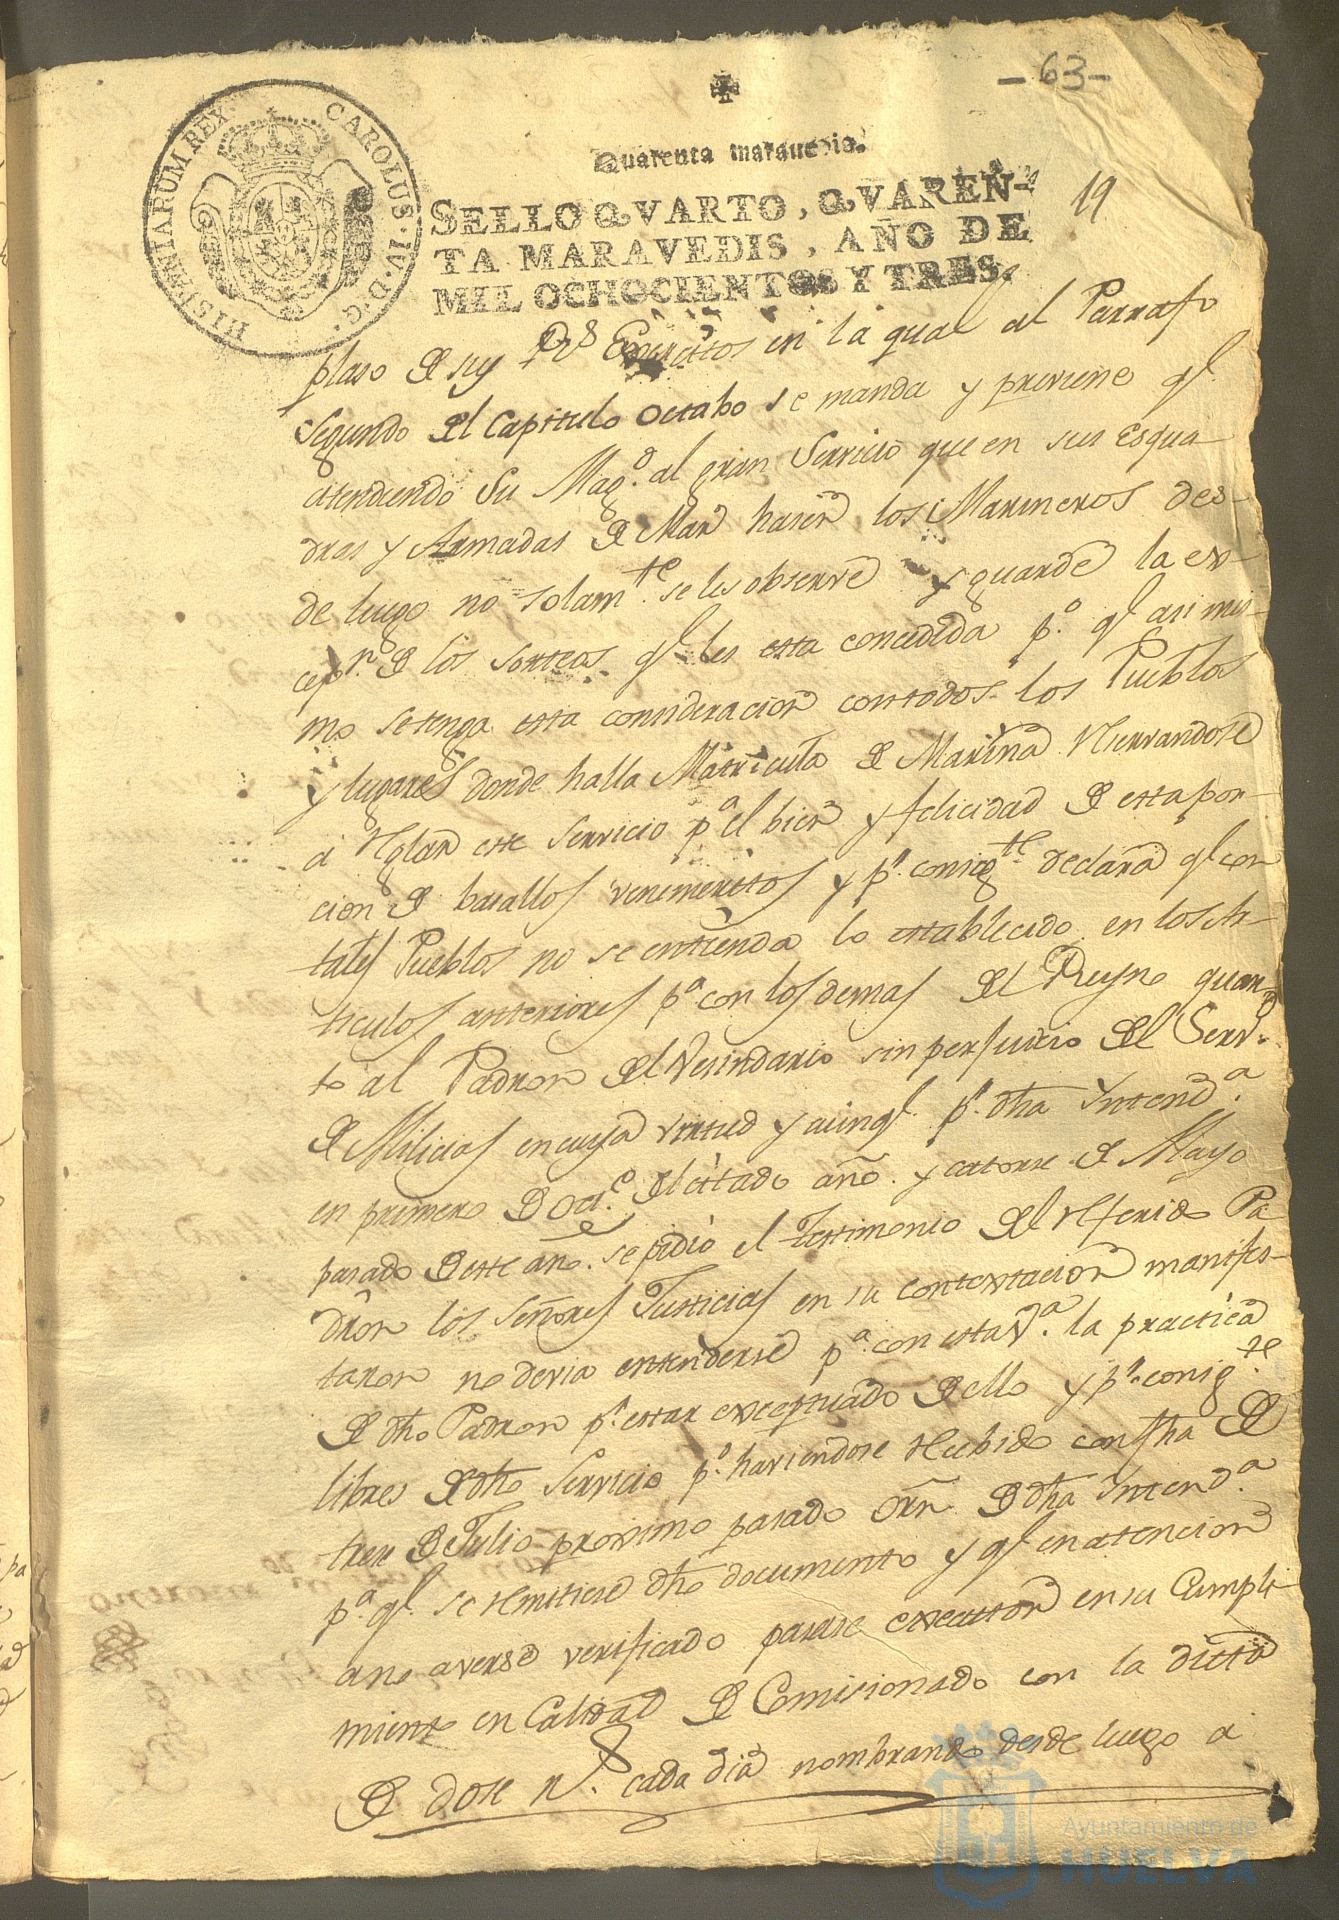 - 63 -
HISPANIARUM REX. CAROLUS. IV. D. G.
Quarenta maravedis.
19
SELLO QVARTO, QVAREN-
TA MARAVEDIS, AÑO DE
MIL OCHOCIENTOS Y TRES.
plaso de sus Rs Exercitos en la qual al Parrafo
segundo del Capitulo Octabo se manda y previene qe.
atendiendo Su Magd. al gran Servicio que en sus esqua-
dras y Armadas de Mar hasen los Marineros des-
de luego no solamte. se les observe y guarde la ex-
cepn. de los sorteos qe. les esta concedida po. qe asi mis-
mo se tenga esta consideracion con todos los Pueblos
y lugares donde halla Matricula de Marina reservandose
a reglar este servicio pa el bien y felicidad de esta por-
cion de basallos venemeritos y pr. consigte. declara qe con
tales Pueblos no se entienda lo establecido en los Ar-
ticulos anteriores pa con los demas del Reyno quan-
to al Padron del Vesindario sin perjuicio del Servo.
de Milicias en cuya virtud y aunqe. pr. dha Yntenda.
en primero de Octe. del citado año y catorse de Mayo
pasado de este año. se pidio el Testimonio del referido Pa-
dron los Señores Justicias en su contextacion manifes-
taron no devia entenderse pa. con esta Va. la practica
de dho Padron pr. estar exceptuado de ello y pr. consigte.
libres de dho Servicio po. haviendose recibido con fha de
tres de Julio proximo pasado Orn. de dha Yntenda.
pa. qe. se remitiese dho documento y qe en atencion
a no averse verificado pasase executor en su Cumpli-
miento en Calidad de Comisionado con la dieta
de dose rs. cada dia nombrando desde luego a
Ayuntamiento de
HUELVA